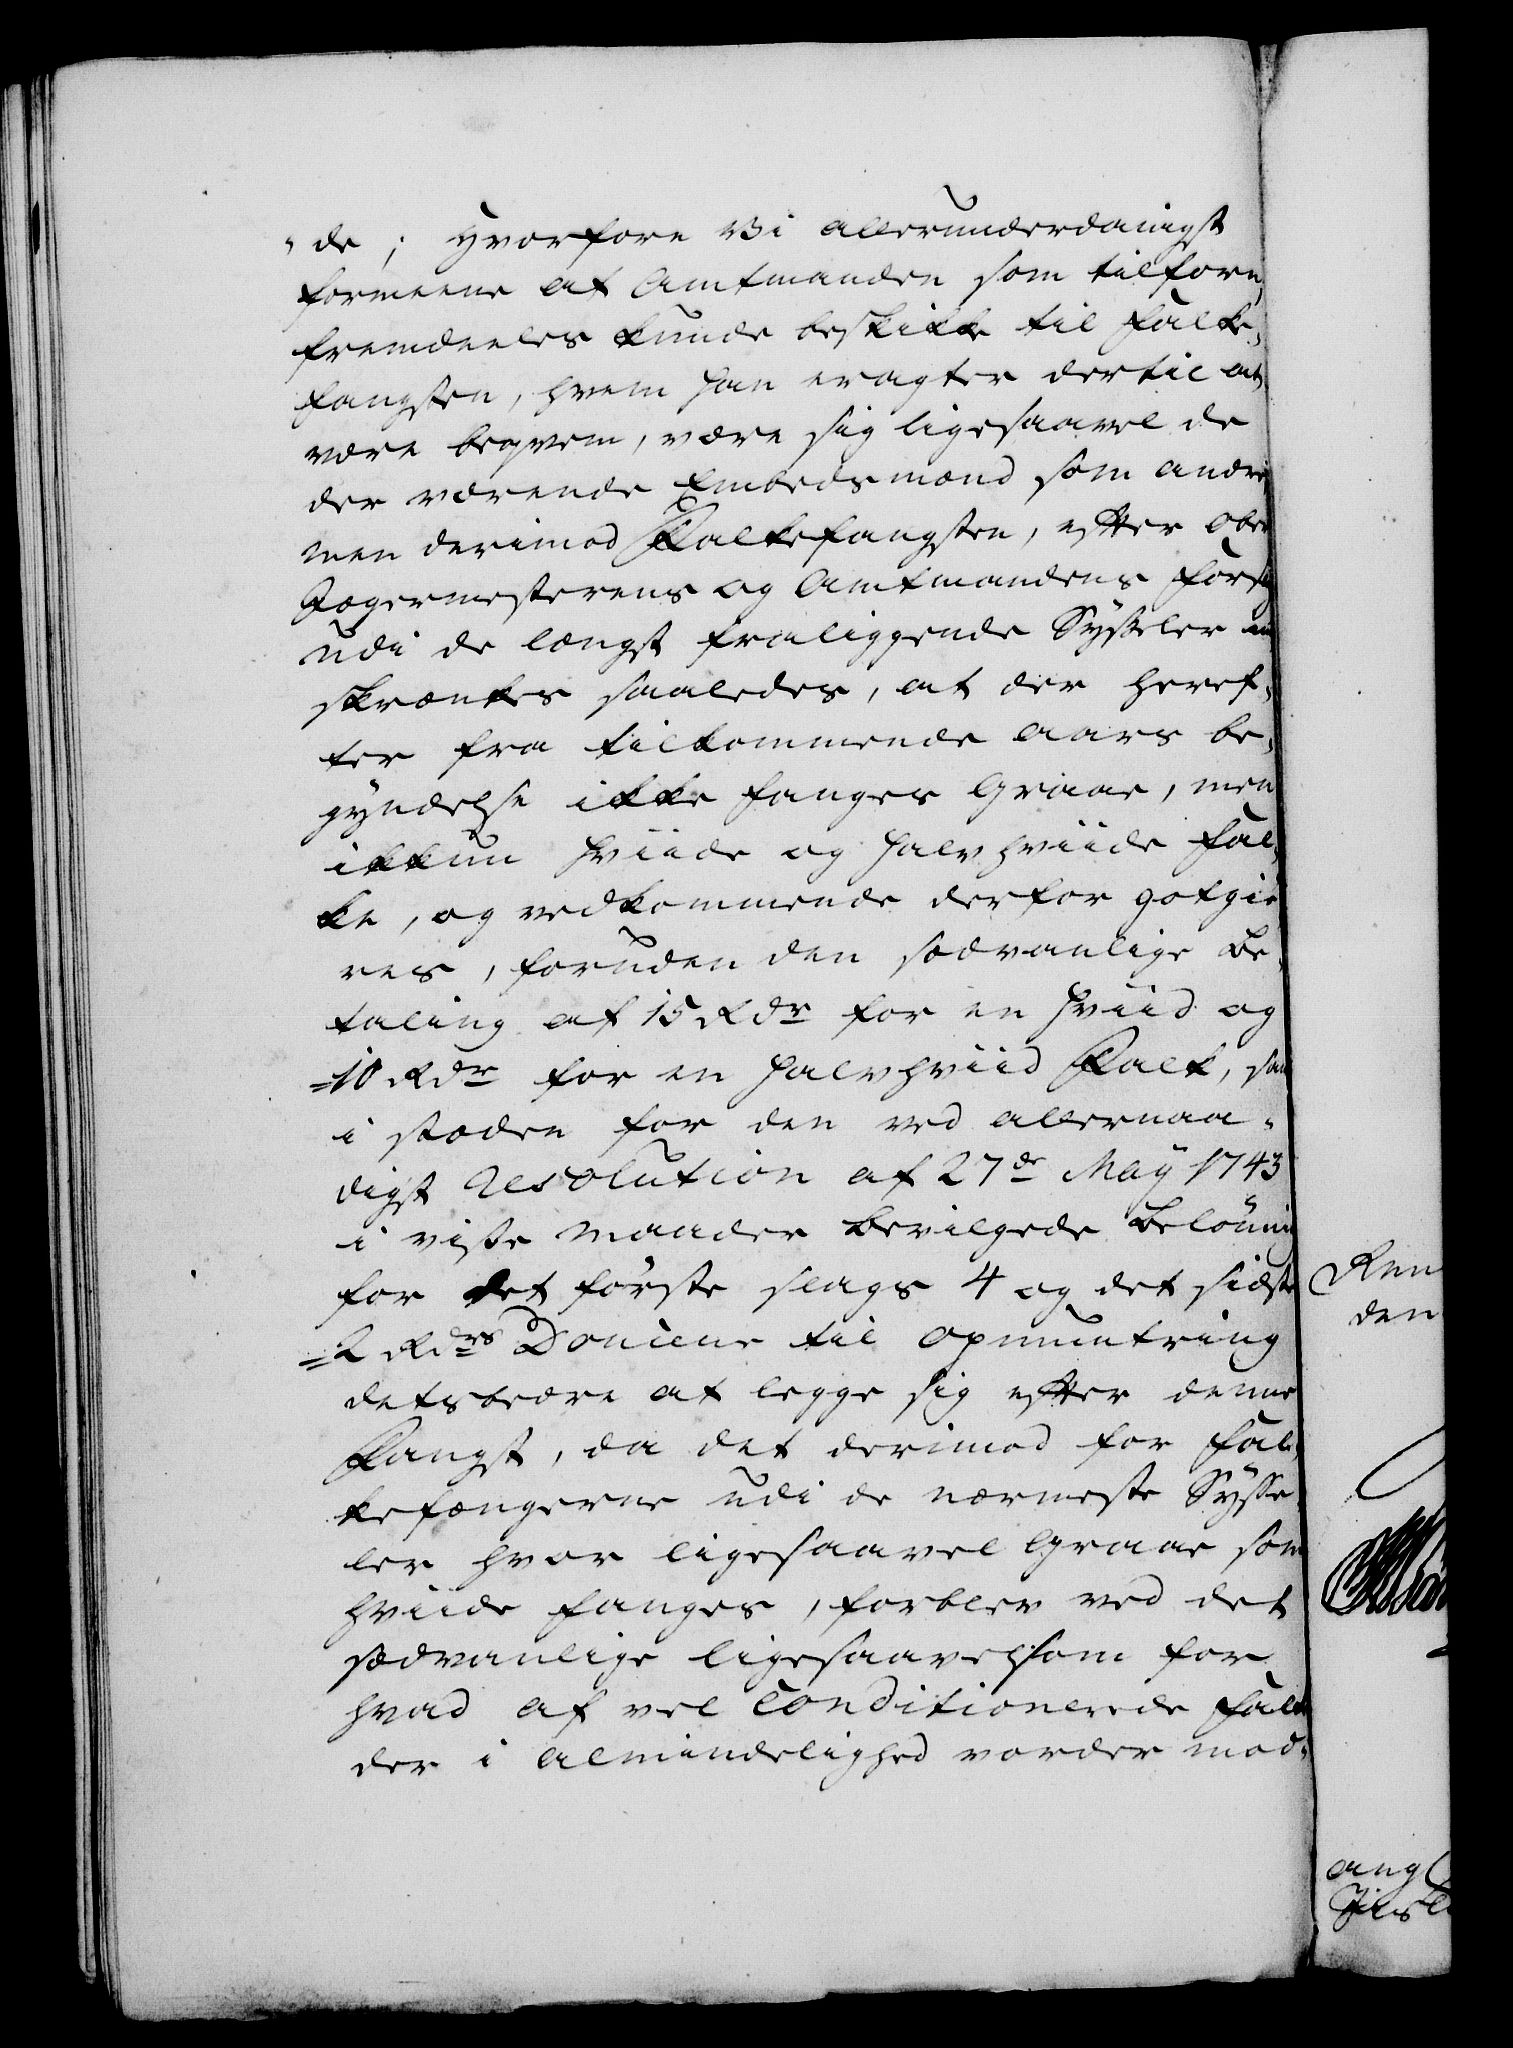 "de; Hvorfore Vi allerunderdanigst
formeene at Amtmanden som tilforn,
fremdeeles kunde beskikke til Falke-
fangsten, hvem han eragter dertil at
være beqvem, være sig ligesaavel de
der værende Embedsmænd som andre,
men derimod Falkefangsten, efter Ober
Jægermesterens og Amtmandens Forsl
udi de længst fraliggende Sysseler in
skrænkes saaledes, at der heref-
ter fra tilkommende Aars be-
gyndelse ikke fanges Graae, men
ikkun hviide og halvhviide Fal-
ke, og vedkommende derfor gotgiö
res, foruden den sædvanlige Be-
taling af 15 Rdr for en hviid og
=10 Rdr for en halvhviid Falk, saa
i stæden for den ved allernaa-
digst Resolution af 27de Maÿ 1743
i visse Maader bevilgede Belönning
for det förste slags 4 og det sidste
=2 Rdrs Douceur til Opmuntring
detsbedre at legge sig efter denne
Fangst, da det derimod for Fal-
kefængerne udi de nærmeste Sysse-
ler hvor ligesaavel Graae som
hviide fanges, forblev ved det
sædvanlige ligesaavelsom for
hvad af vel Conditionerede Falke
der i Almindelighed vorder mod-
Ren
den
ang